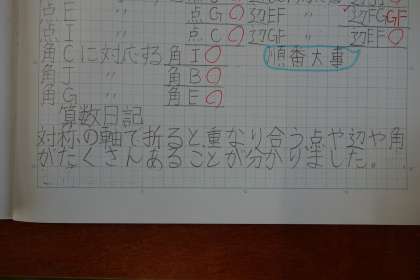 点E 〃 点G 辺EF 〃 辺GF
点I 〃 点C 辺GF 〃 辺EF
角Cに対応する 角I 順番大事
角J 〃 角B
角G 〃 角E
算数日記
対称の軸で折ると、重なり合う点や辺や角
がたくさんあることが分かりました。